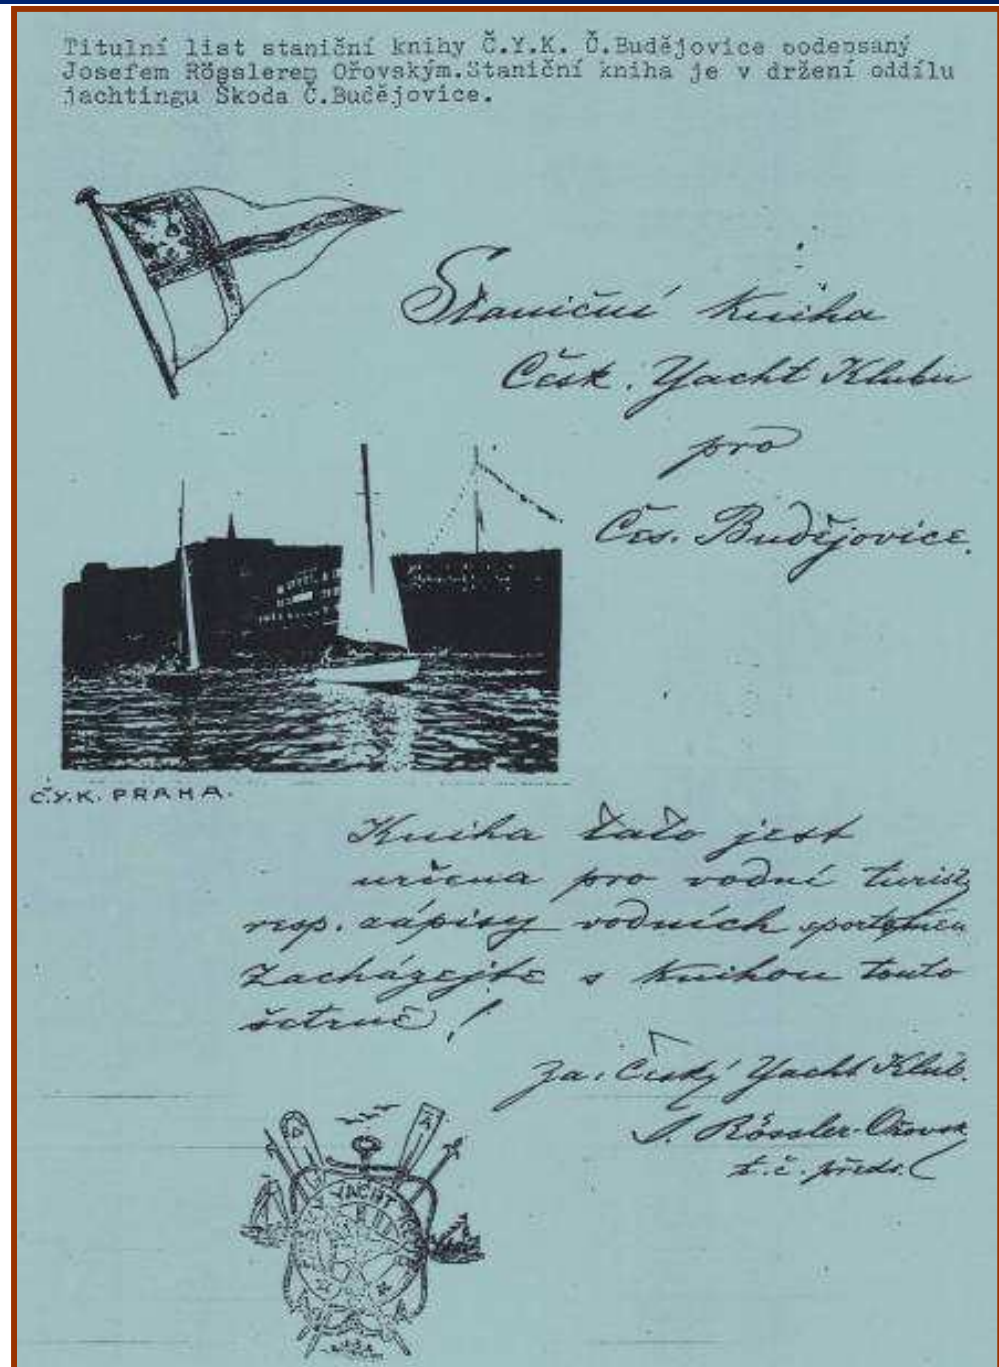 Titulní list staniční knihy Č.Y.K. Č.Budějovice podepsaný
Josefem Rösslerem Ořovským.Staniční kniha je v držení oddílu
jachtingu Škoda Č.Budějovice.
Staniční kniha
Česk. Yacht Klubu
pro
Čes. Budějovice.
Č.Y.K. PRAHA.
Kniha tato jest
určena pro vodní turisty
resp. zápisy vodních sportsmen
Zacházejte s knihou touto
šetrně!
Za: Český Yacht Klub.
J. Rössler-Ořovsk
t. č. předs.
YACHT